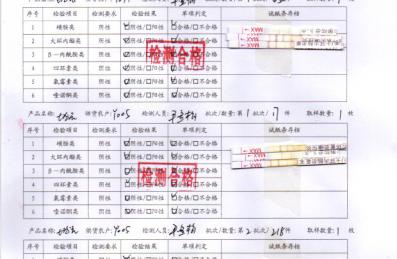 序号 检验项目 检测要求 检验结果 单项判定 试纸条存档
1 磺胺类 阴性 ☑阴性/☐阳性 ☑合格/☐不合格
2 大环内酯类 阴性 ☑阴性/☐阳性 ☑合格/☐不合格
3 β-内酰胺类 阴性 ☑阴性/☐阳性 ☑合格/☐不合格
4 四环素类 阴性 ☑阴性/☐阳性 ☑合格/☐不合格
5 氯霉素类 阴性 ☑阴性/☐阳性 ☑合格/☐不合格
6 喹诺酮类 阴性 ☑阴性/☐阳性 ☑合格/☐不合格
检测合格
MAX
MAX
产品名称: 供货农户: Y005 检测人员: 批次/数量: 第 1 批次/ 17 件 取样数量: 1 枚
序号 检验项目 检测要求 检验结果 单项判定 试纸条存档
1 磺胺类 阴性 ☑阴性/☐阳性 ☑合格/☐不合格
2 大环内酯类 阴性 ☑阴性/☐阳性 ☑合格/☐不合格
3 β-内酰胺类 阴性 ☑阴性/☐阳性 ☑合格/☐不合格
4 四环素类 阴性 ☑阴性/☐阳性 ☑合格/☐不合格
5 氯霉素类 阴性 ☑阴性/☐阳性 ☑合格/☐不合格
6 喹诺酮类 阴性 ☑阴性/☐阳性 ☑合格/☐不合格
检测合格
MAX
产品名称: 供货农户: Y005 检测人员: 批次/数量: 第 2 批次/ 218 件 取样数量: 1 枚
序号 检验项目 检测要求 检验结果 单项判定 试纸条存档